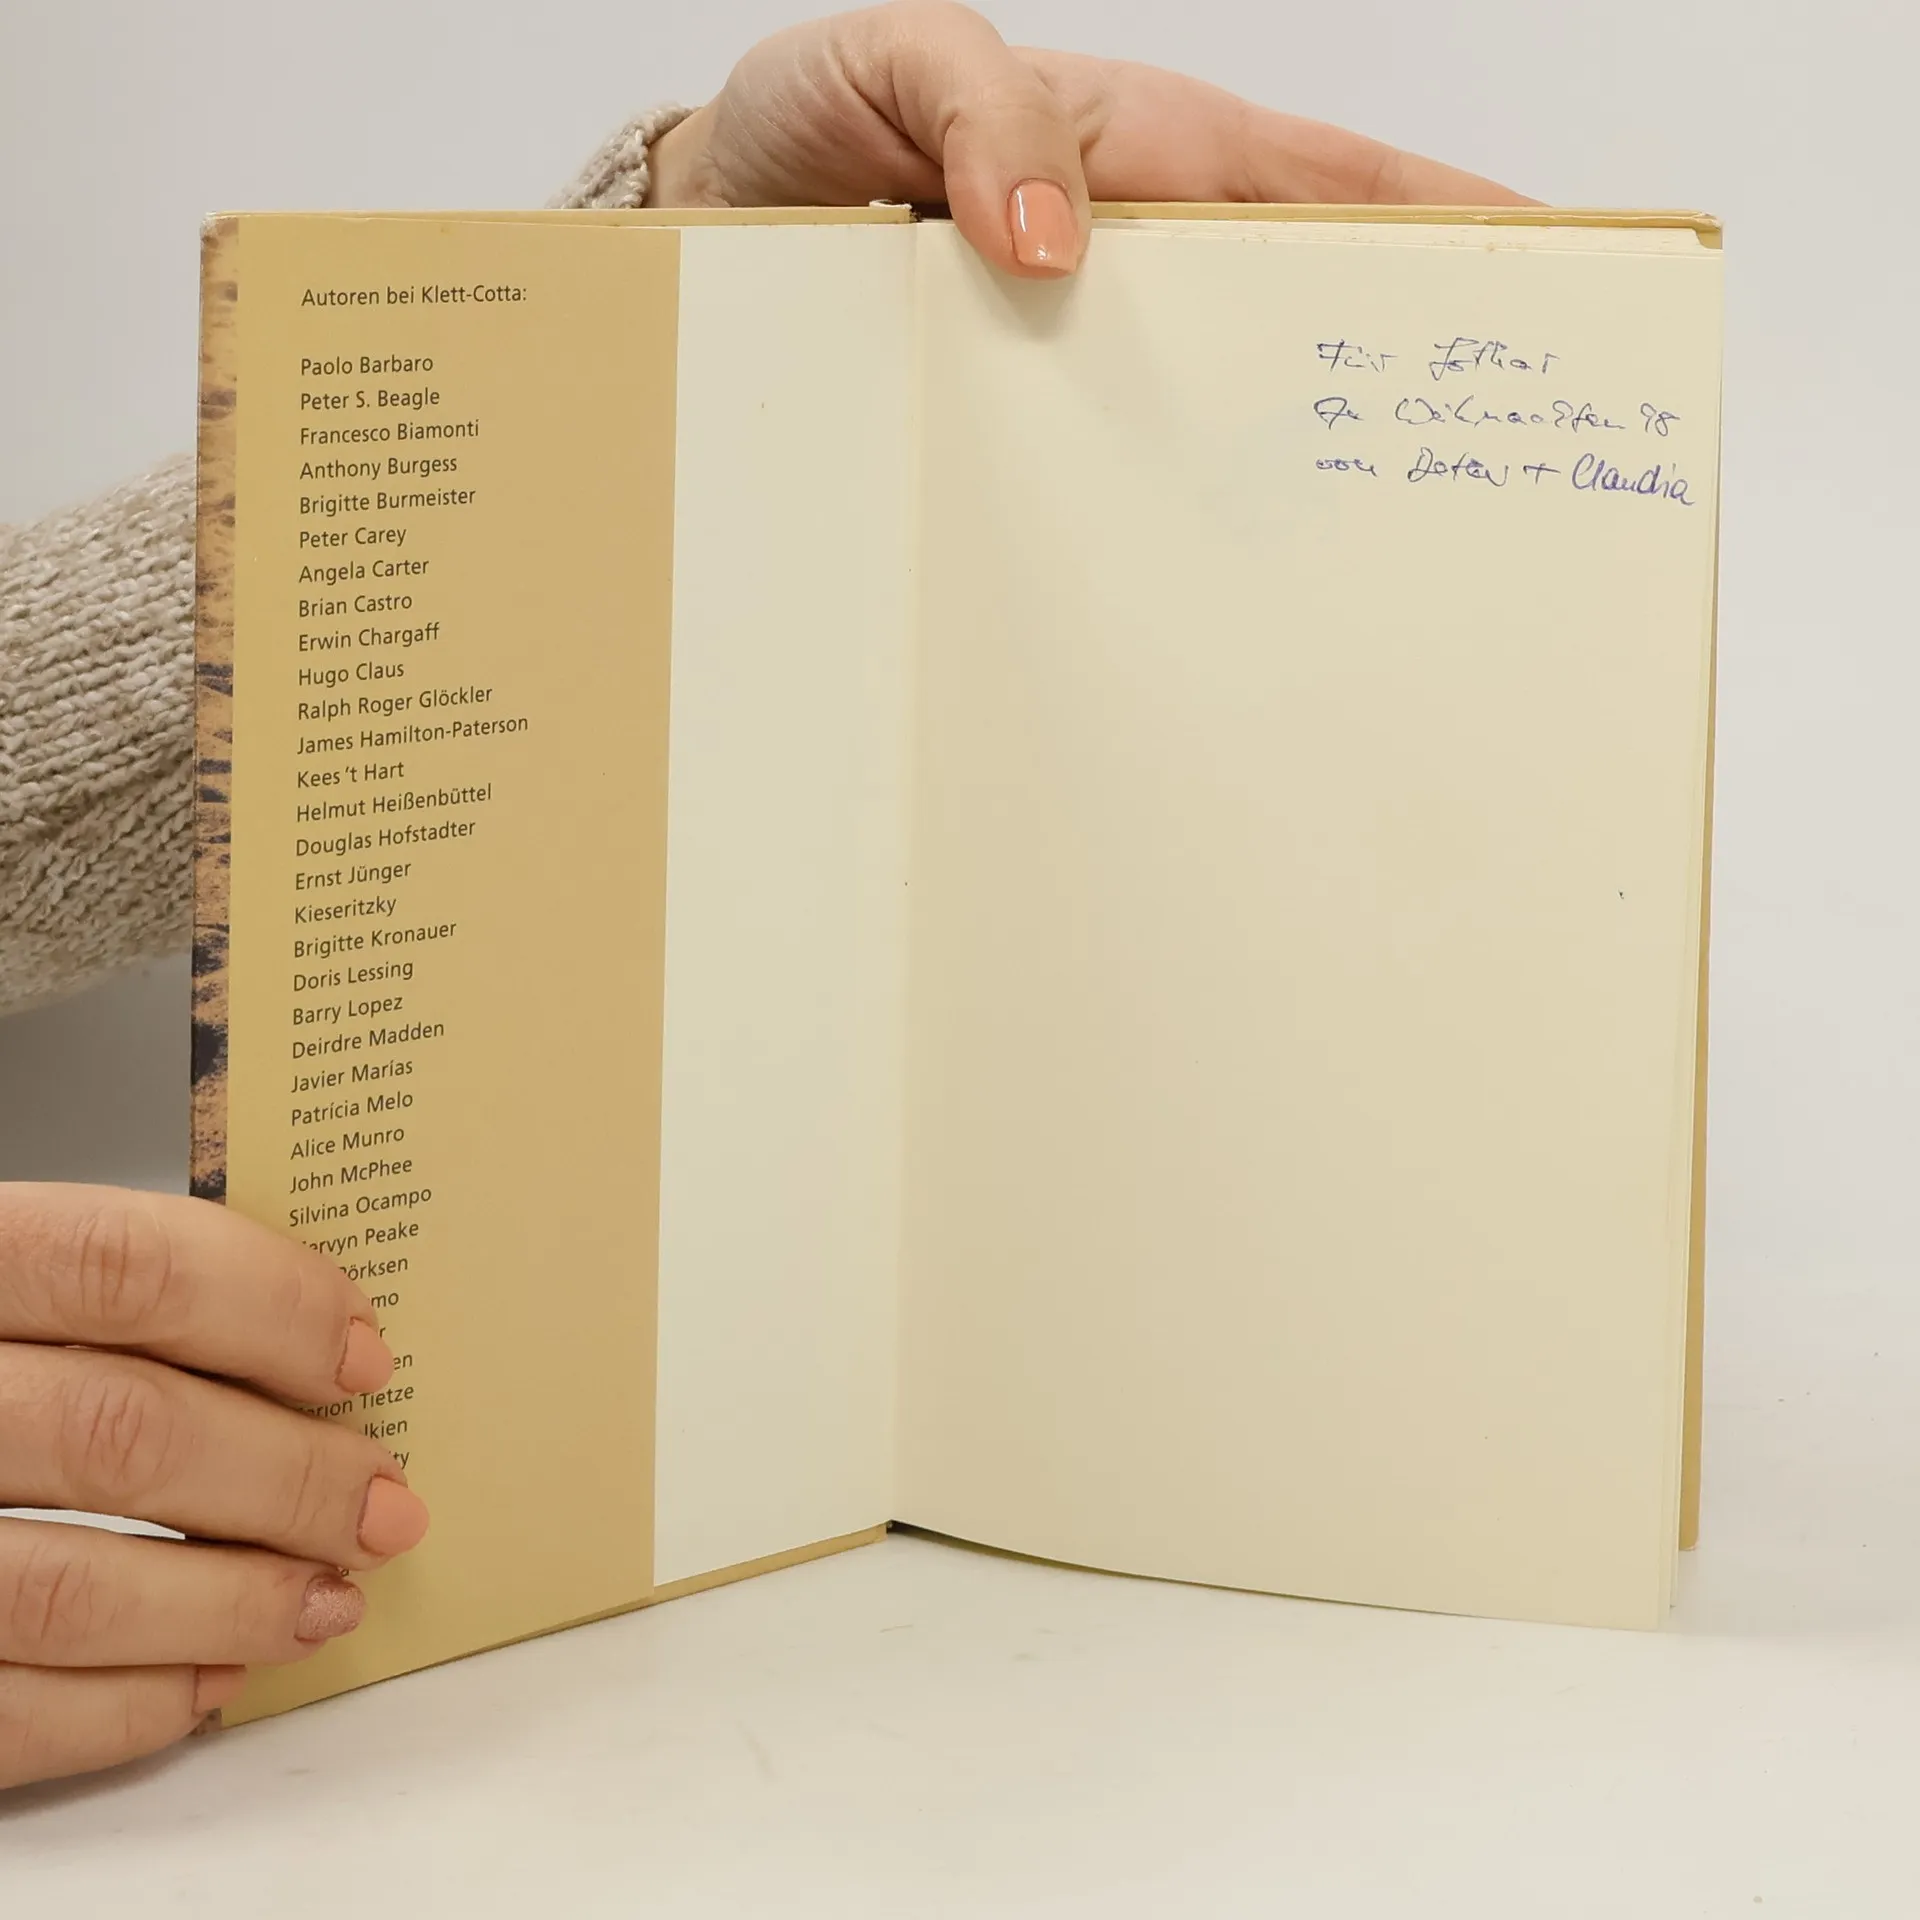 Autoren bei Klett-Cotta:
Paolo Barbaro
Peter S. Beagle
Francesco Biamonti
Anthony Burgess
Brigitte Burmeister
Peter Carey
Angela Carter
Brian Castro
Erwin Chargaff
Hugo Claus
Ralph Roger Glöckler
James Hamilton-Paterson
Kees 't Hart
Helmut Heißenbüttel
Douglas Hofstadter
Ernst Jünger
Kieseritzky
Brigitte Kronauer
Doris Lessing
Barry Lopez
Deirdre Madden
Javier Marías
Patrícia Melo
Alice Munro
John McPhee
Silvina Ocampo
ervyn Peake
örksen
mo
r
en
rion Tietze
lkien
ty
Für Lothar
Zu Weihnachten 98
von Detlev + Claudia